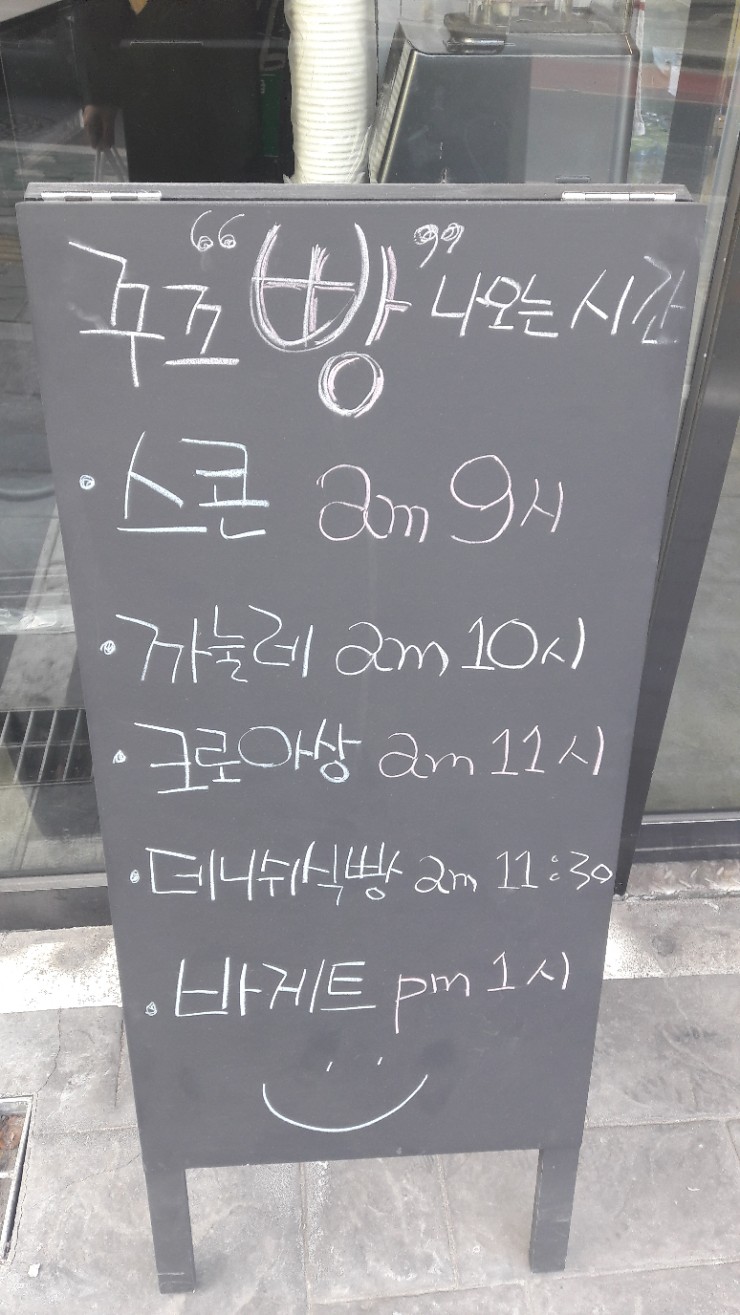 쭈쪼 "빵" 나오는 시간
• 스콘 am 9시
• 까눌레 am 10시
• 크로아상 am 11시
• 데니쉬식빵 am 11:30
• 바게트 pm 1시